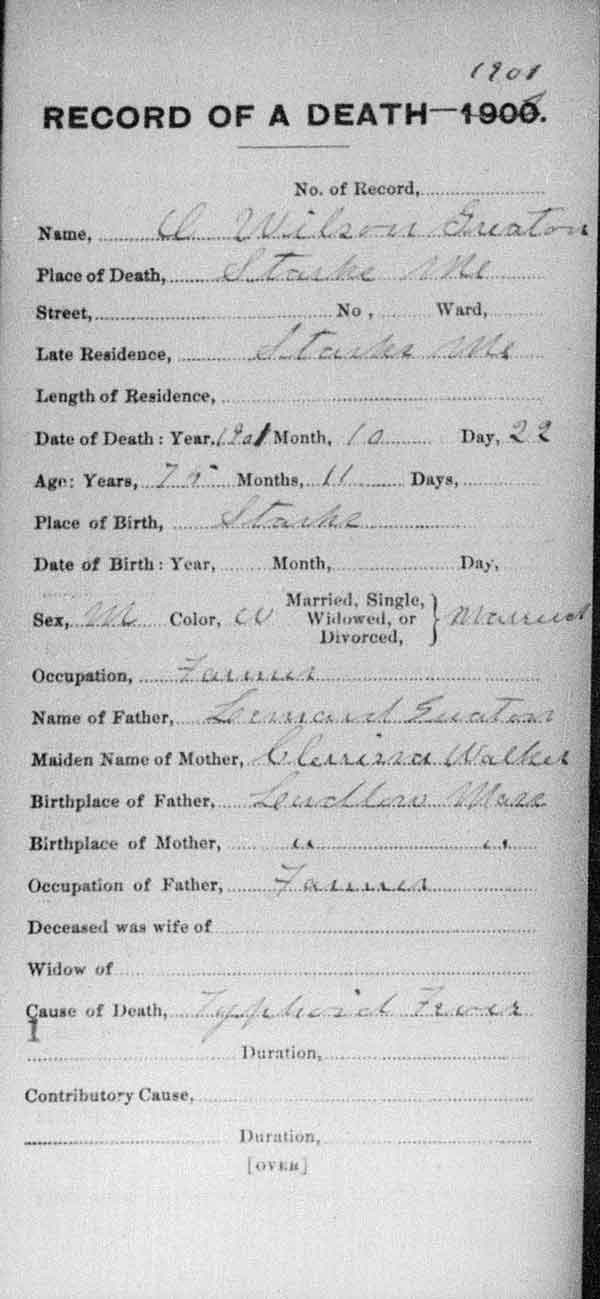 1901
RECORD OF A DEATH—1900.
No. of Record,
Name, O Wilson Greaton
Place of Death, Starks Me
Street, No, Ward,
Late Residence, Starks Me
Length of Residence,
Date of Death: Year, 1901 Month, 10 Day, 22
Age: Years, 75 Months, 11 Days,
Place of Birth, Starks
Date of Birth: Year, Month, Day,
Sex, M Color, W Married, Single, Widowed, or Divorced, } Married
Occupation, Farmer
Name of Father, Greaton
Maiden Name of Mother, Walker
Birthplace of Father, Ludlow Mass
Birthplace of Mother, " "
Occupation of Father, Farmer
Deceased was wife of
Widow of
Cause of Death, Typhoid Fever
1
Duration,
Contributory Cause,
Duration,
[OVER]